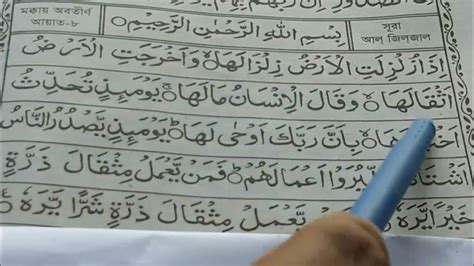 মক্কায় অবতীর্ণ
আয়াত-৮
بِسْمِ اللهِ الرَّحْمٰنِ الرَّحِيْمِ
সূরা
আল জিলজাল
اِذَا زُلْزِلَتِ الْاَرْضُ زِلْزَالَهَا ۙ وَاَخْرَجَتِ الْاَرْضُ
اَثْقَالَهَا ۙ وَقَالَ الْاِنْسَانُ مَالَهَا ۚ يَوْمَئِذٍ تُحَدِّثُ
بِاَنَّ رَبَّكَ اَوْحٰى لَهَا ؕ يَوْمَئِذٍ يَّصْدُرُ النَّاسُ
اَعْمَالَهُمْ ؕ فَمَنْ يَّعْمَلْ مِثْقَالَ ذَرَّةٍ
خَيْرًا يَّرَهٗ ؕ يَّعْمَلْ مِثْقَالَ ذَرَّةٍ شَرًّا يَّرَهٗ